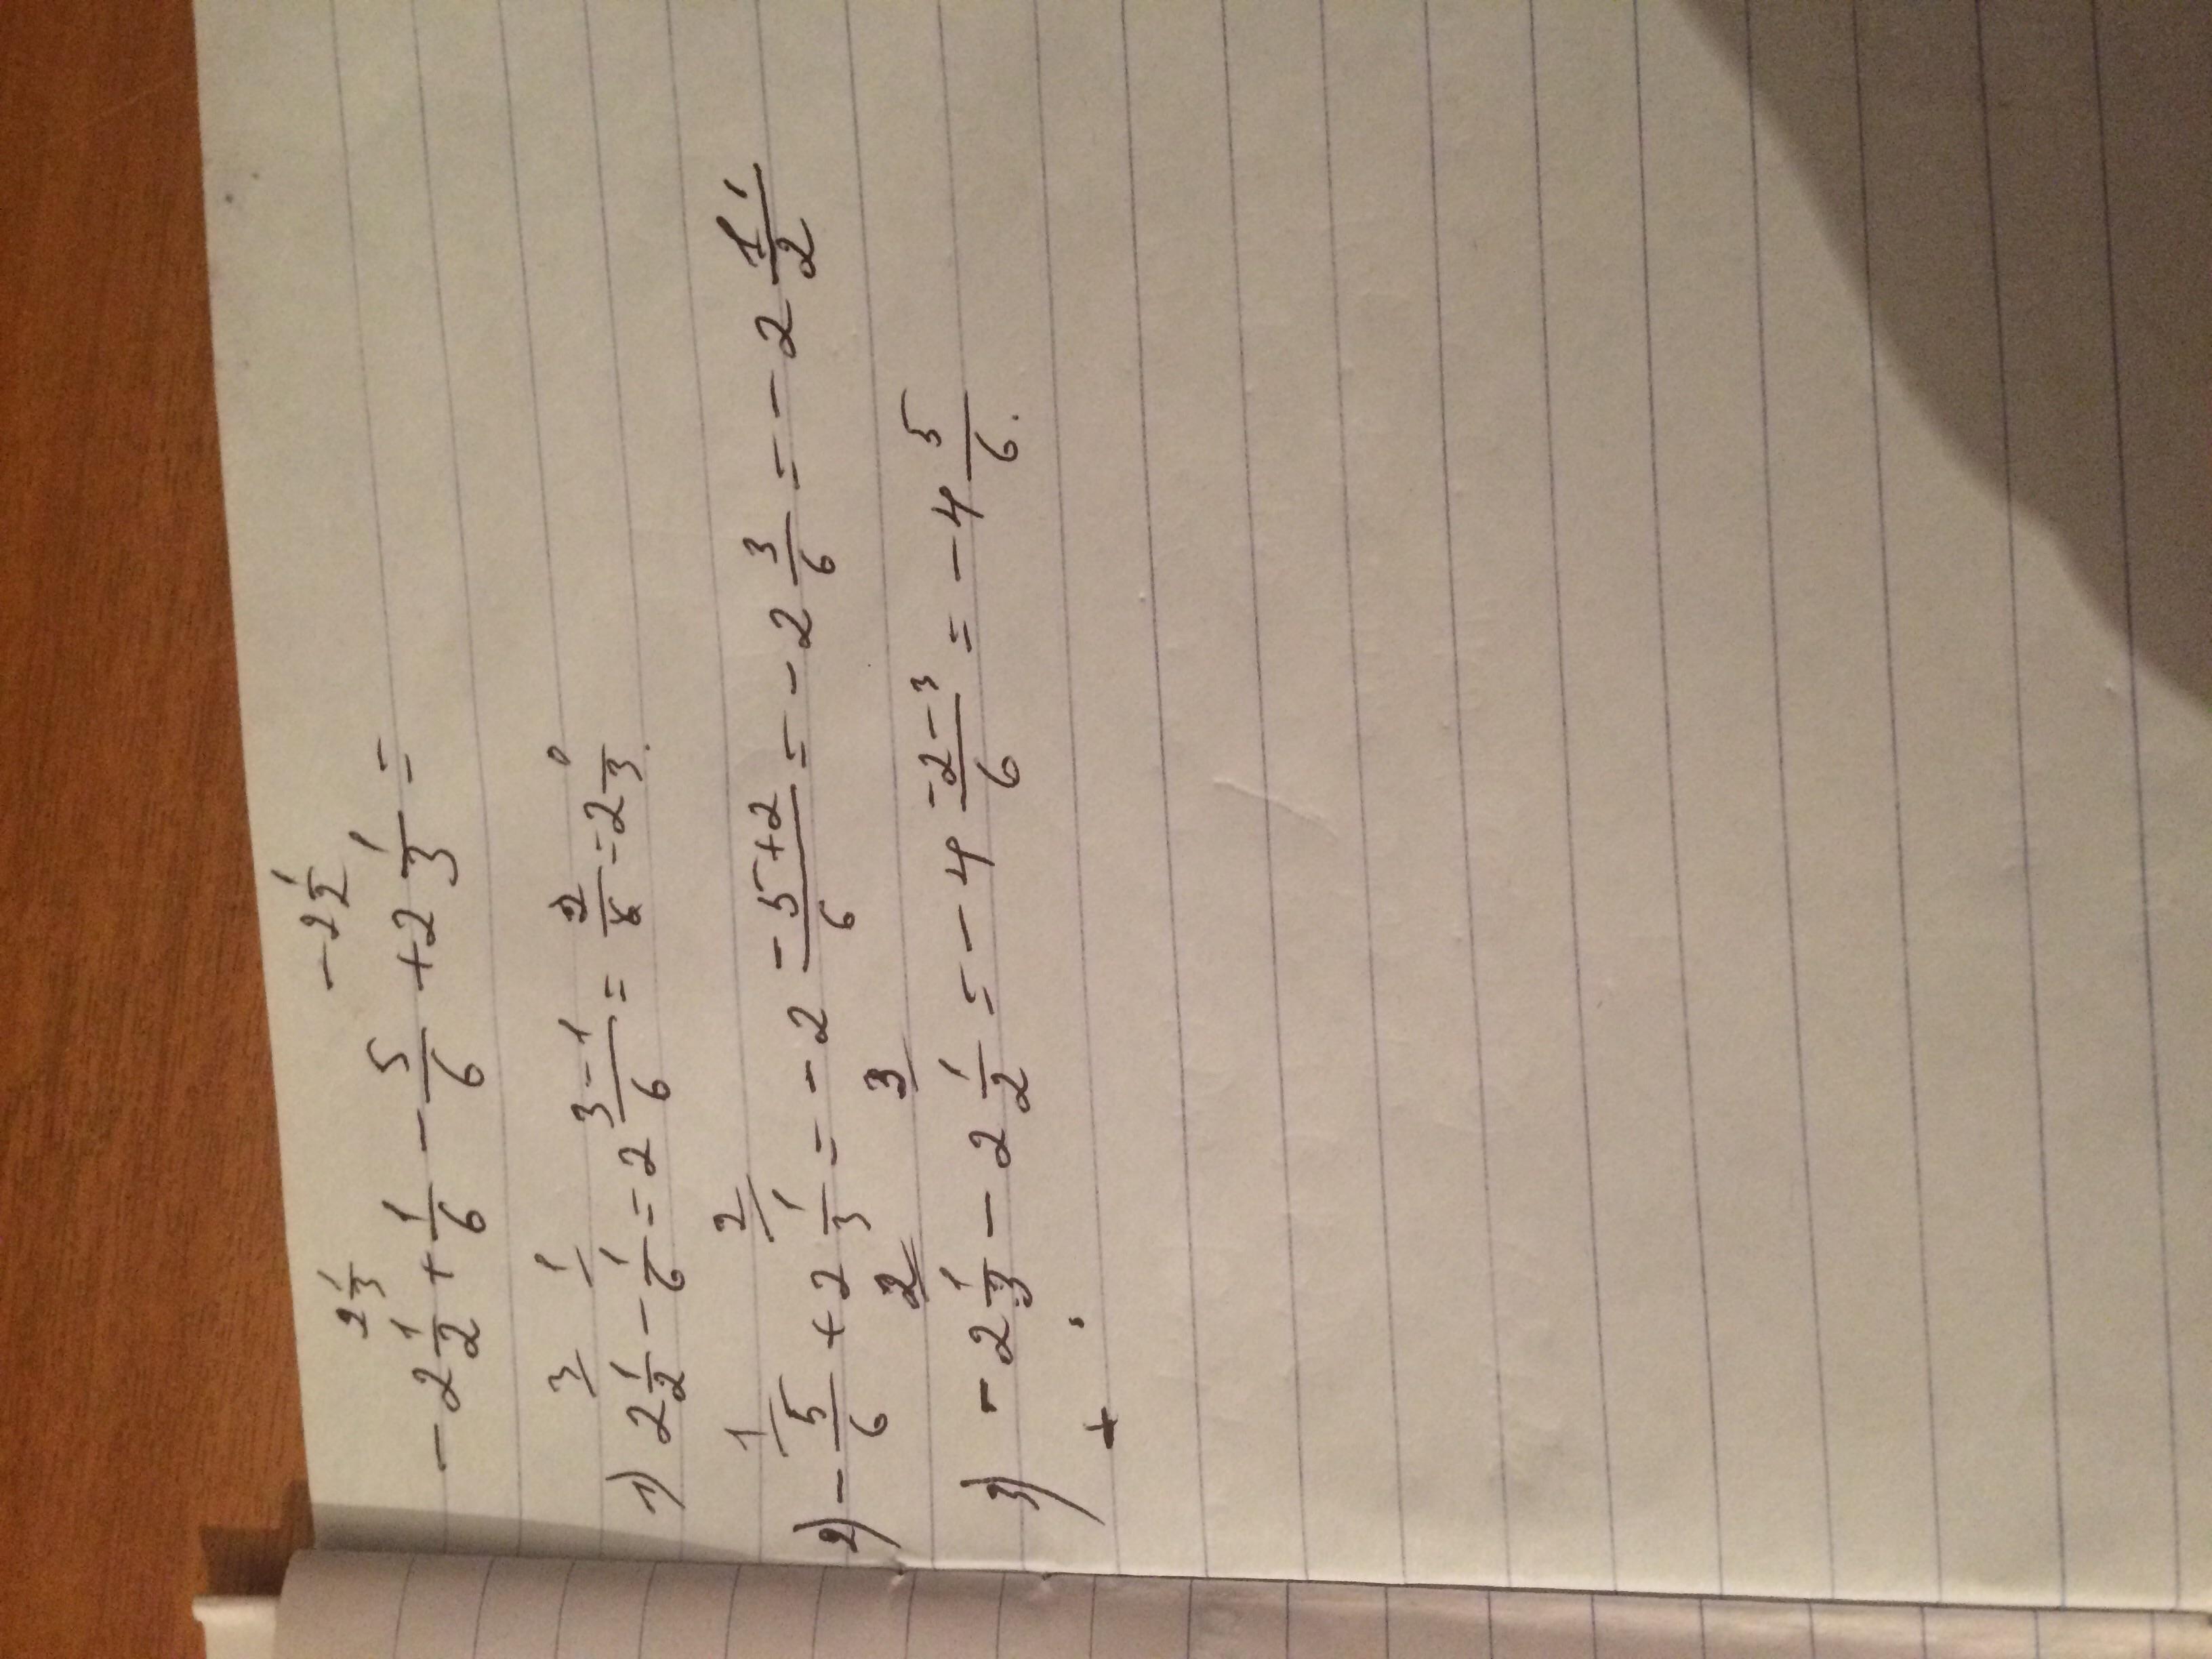 2 1/3 -2 1/2
-2 1/2 + 1/6 - 5/6 + 2 1/3 =
3 1
1) 2 1/2 - 1/6 = 2 3-1/6 = 2/6 = 2 1/3.
1 2
2) - 5/6 + 2 1/3 = -2 -5+2/6 = -2 3/6 = -2 1/2
2 3
3) -2 1/3 - 2 1/2 = -4 -2-3/6 = -4 5/6.
+